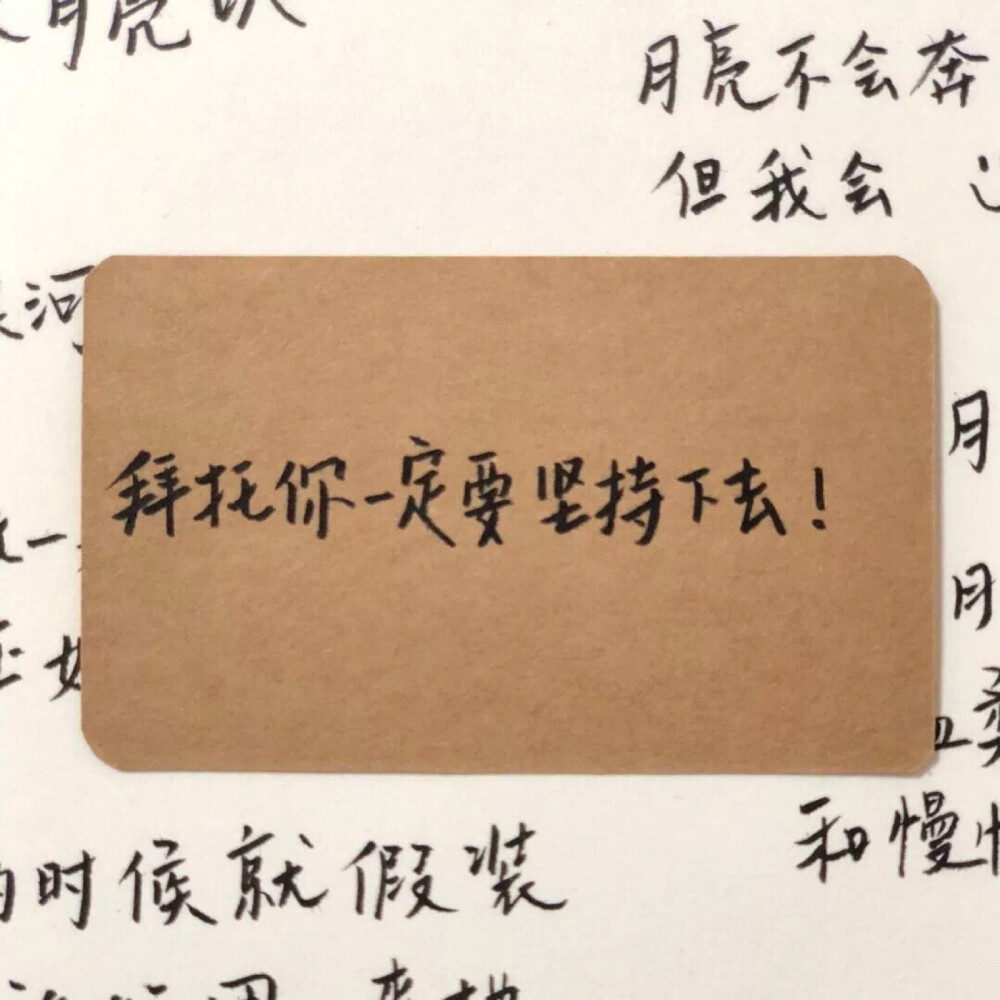 月亮
月亮不会奔
但我会
河
拜托你一定要坚持下去！
月
一
月
和慢
时候就假装